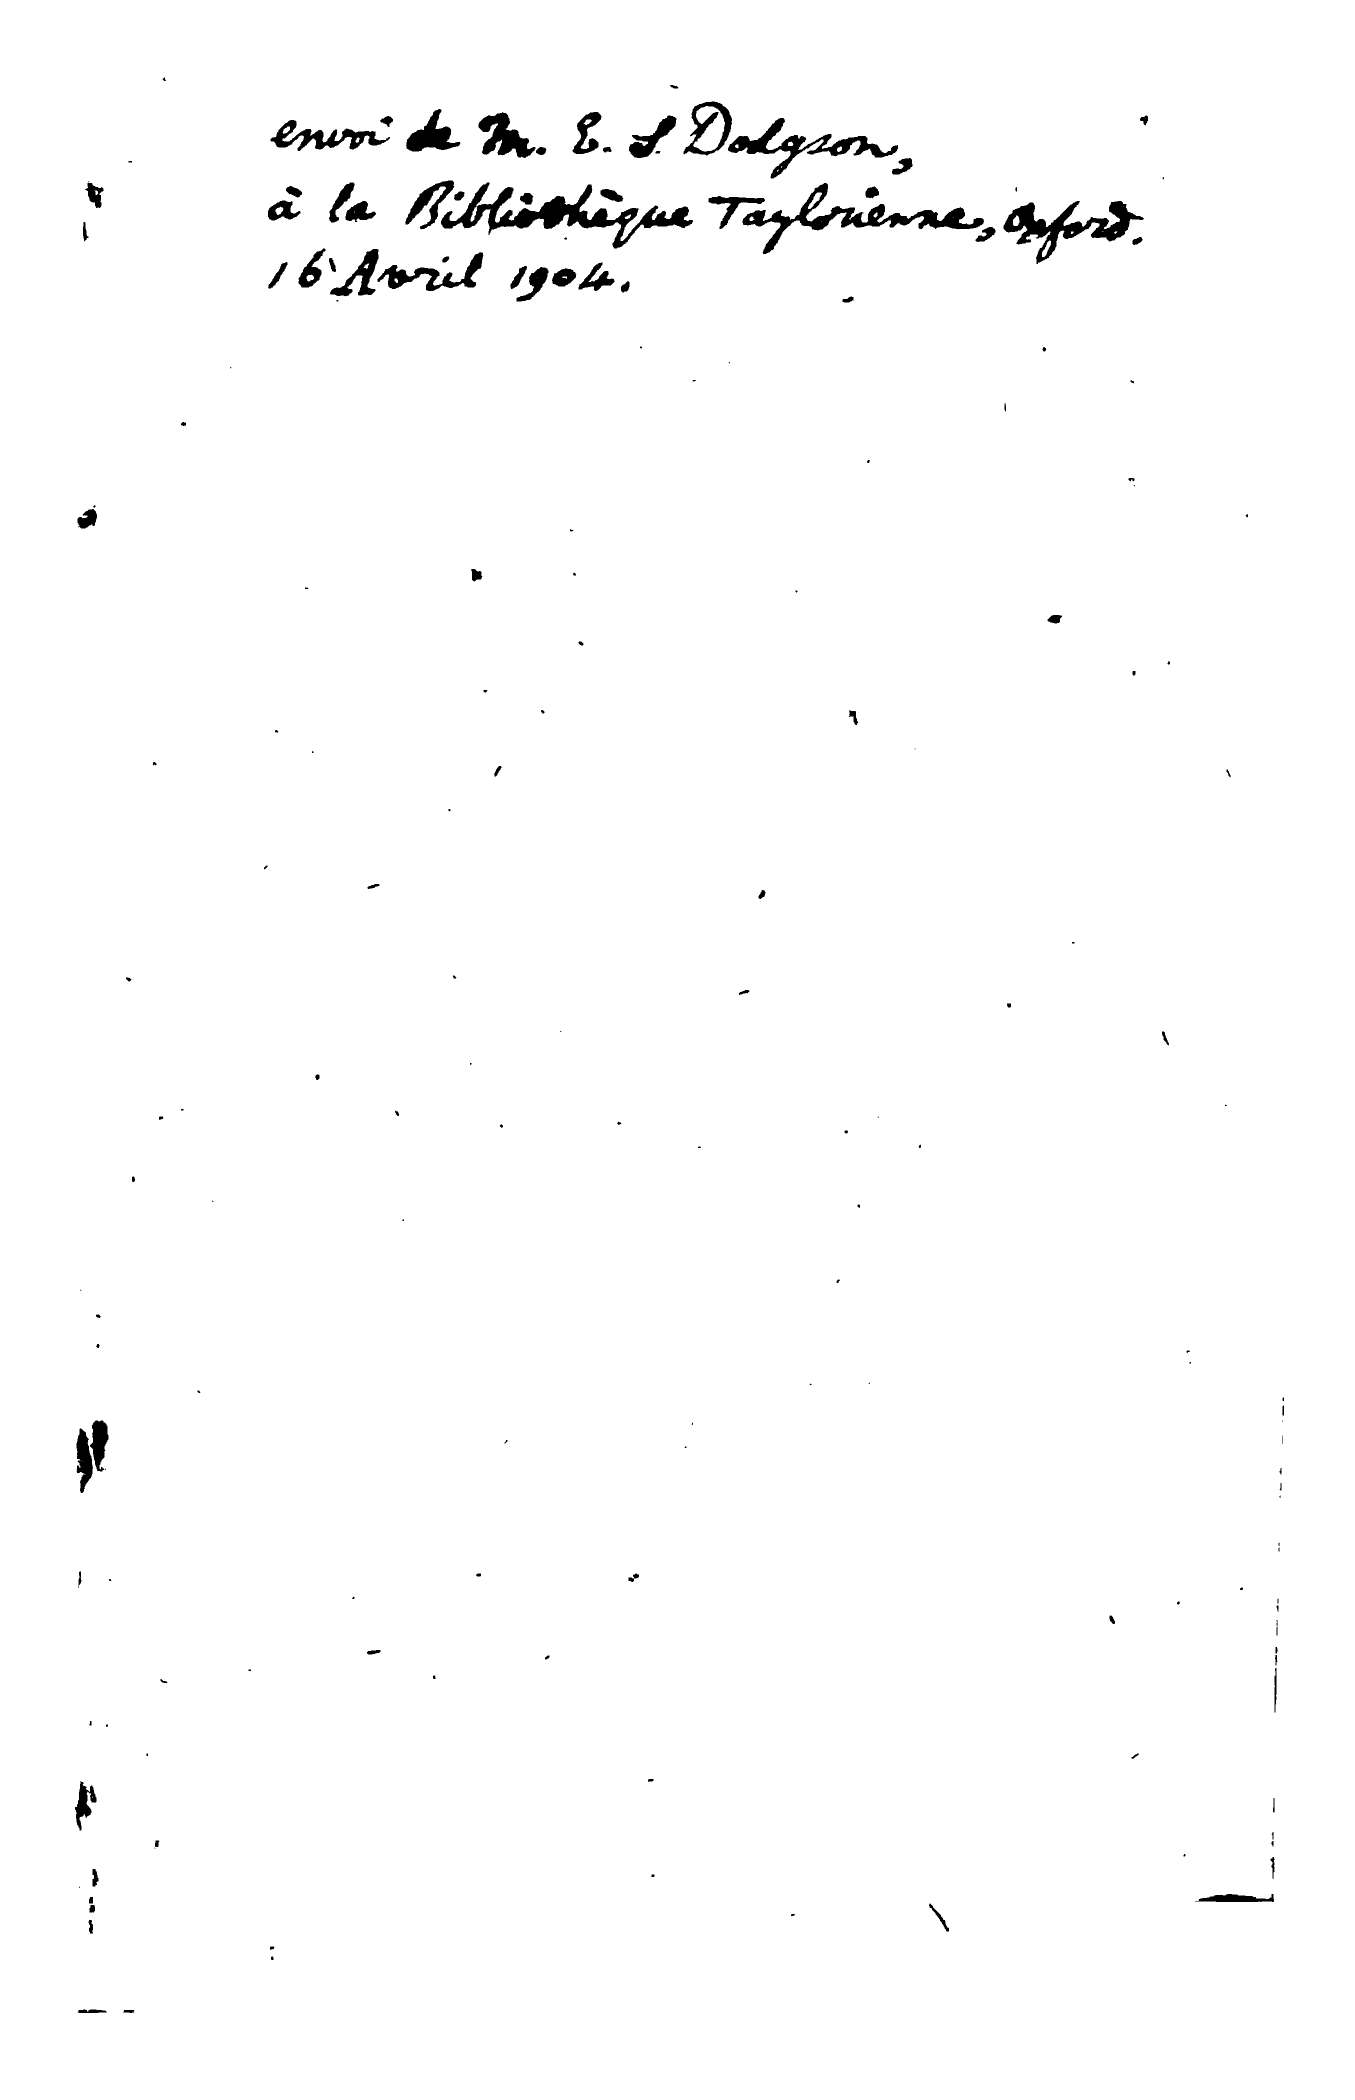 envoi de M. E. S. Dodgson,
à la Bibliothèque Taylorienne, Oxford.
16 Avril 1904.